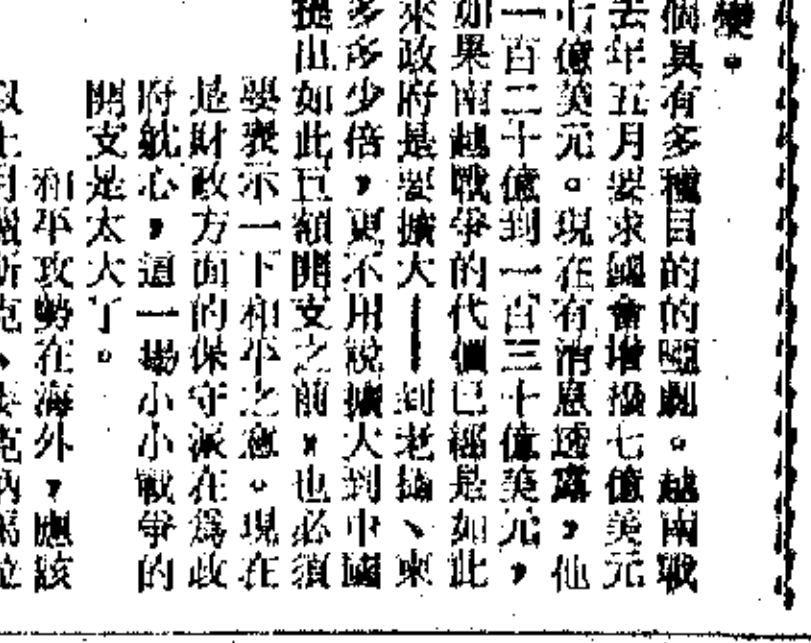 變。
個具有多種目的的鬧劇。越南戰
去年五月要求國會增撥七億美元
十億美元。現在有消息透露，他
一百二十億到一百三十億美元，
如果南越戰爭的代價已經是如此
來政府是要擴大——到老撾、柬
多多少倍，更不用說擴大到中國
提出如此巨額開支之前，也必須
要表示一下和平之意。現在
是財政方面的保守派在爲政
府躭心，這一場小小戰爭的
開支是太大了。
和平攻勢在海外，應該